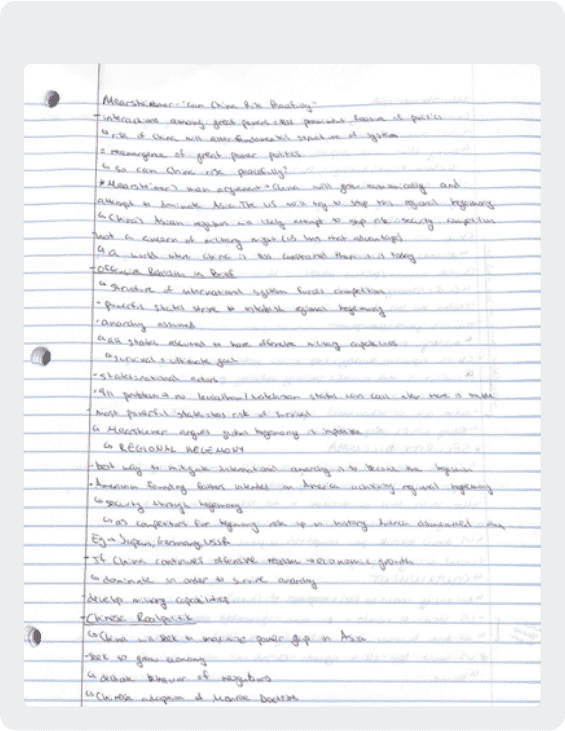 Mearsheimer - "Can China Rise Peacefully"
- interactions among great powers most prominent feature of politics
↳ rise of China will alter fundamental structure of system
= reemergence of great power politics
↳ so can China rise peacefully?
* Mearsheimer's main argument → China will grow economically and
attempt to dominate Asia. The US will try to stop this regional hegemony
↳ China's Asian neighbors will likely attempt to stop rise → security competition
- not a concern of military might (US has that advantage)
↳ a world where China is less constrained than it is today
- Offensive Realism in Brief
↳ structure of international system forces competition
- powerful states strive to establish regional hegemony
- anarchy assumed
↳ all states assumed to have offensive military capabilities
↳ survival = ultimate goal
- states = rational actors
- 911 problem → no leviathan/watchman states can call when there is trouble
- most powerful state = less risk of survival
↳ Mearsheimer argues global hegemony is impossible
↳ REGIONAL HEGEMONY
- best way to mitigate international anarchy is to become the hegemon
- American founding fathers intended on America achieving regional hegemony
↳ security through hegemony
↳ as competitors for hegemony rise up in history America dismantled them
Eg → Japan, Germany, USSR
- If China continues offensive realism → economic growth
↳ dominate in order to survive anarchy
- develop military capabilities
- Chinese Realpolitik
↳ China will seek to maximize power gap in Asia
- seek to grow economy
↳ dictate behavior of neighbors
↳ Chinese adaption of Monroe Doctrine